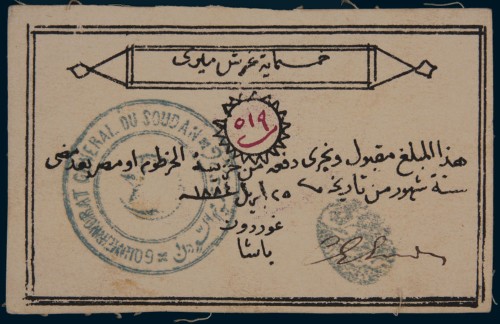 خمسماية غرش ميرى
٥١٩
هذا المبلغ مقبول ويجرى دفعه من خزينة الخرطوم او مصر بعد مضى
ستة شهور من تاريخه ٢٥ ابريل ١٨٨٤
غوردون
باشا
GOUVERNORAT GENERAL DU SOUDAN